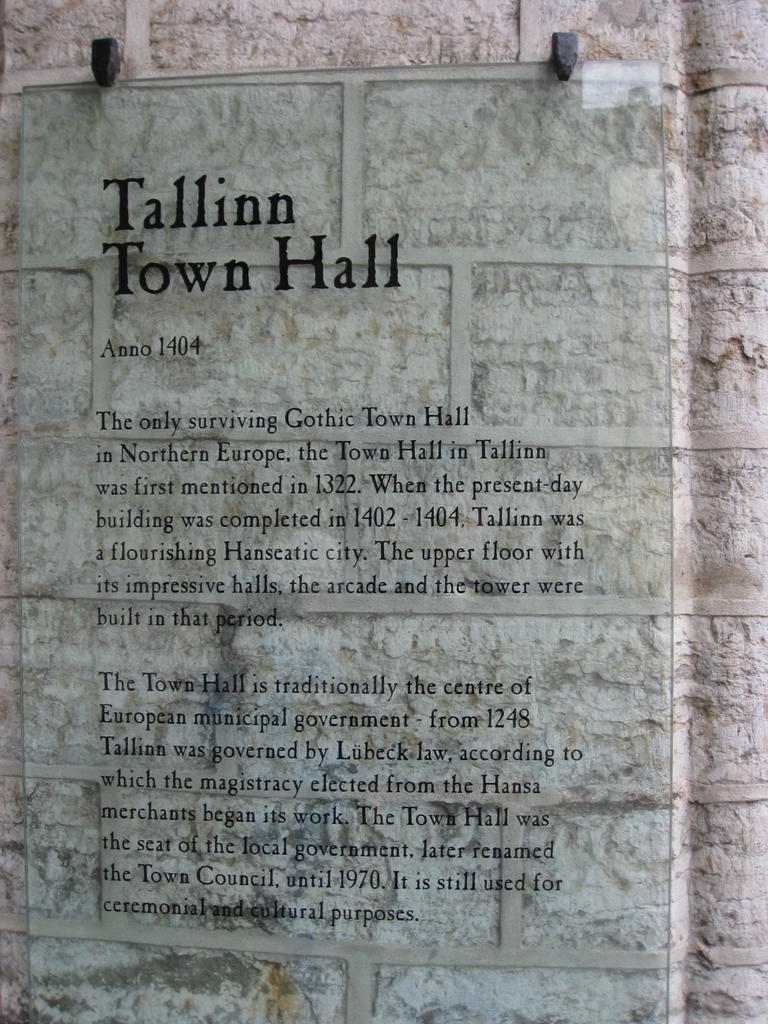 Tallinn
Town Hall
Anno 1404
The only surviving Gothic Town Hall
in Northern Europe, the Town Hall in Tallinn
was first mentioned in 1322. When the present-day
building was completed in 1402 - 1404, Tallinn was
a flourishing Hanseatic city. The upper floor with
its impressive halls, the arcade and the tower were
built in that period.
The Town Hall is traditionally the centre of
European municipal government - from 1248
Tallinn was governed by Lübeck law, according to
which the magistracy elected from the Hansa
merchants began its work. The Town Hall was
the seat of the local government, later renamed
the Town Council, until 1970. It is still used for
ceremonial and cultural purposes.